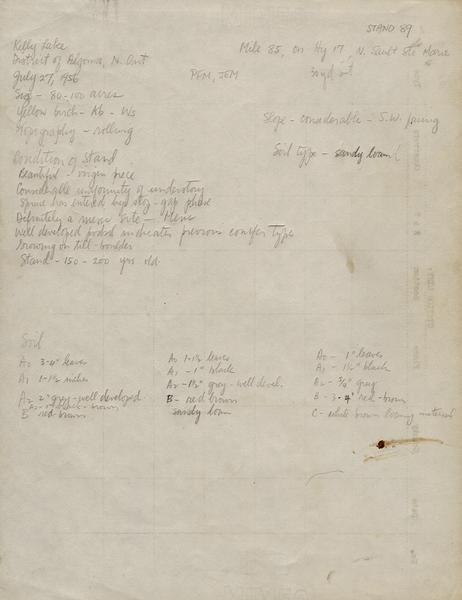 STAND 89
Kelly Lake
Mile 85, on Hy 17, N. Sault Ste Marie
District of Algoma, N. Ont
July 27, 1956
PFM, JEM
30 yd
Size - 80-100 acres
Yellow birch - Ab - Ws
Slope - considerable - S.W. facing
Topography - rolling
Soil type - sandy loam
Condition of Stand
Beautiful - virgin piece
Considerable uniformity of understory
Spruce has entered by stog - gap phase
Definitely a mesic site - Hens
Well developed podsol indicates previous conifer type
Growing on till - boulder
Stand - 150 - 200 yrs old.
Soil
A0 3-4" leaves
A0 1-1½ leaves
A0 - 1" leaves
A1 1-1½ inches
A1 - 1" black
A1 - 1½" black
A2 2" grey - well developed
A2 - 1½" grey - well devel.
A2 - ¾" grey
B red brown
B - red brown
B - 3-4" red-brown
sandy loam
C - white brown material